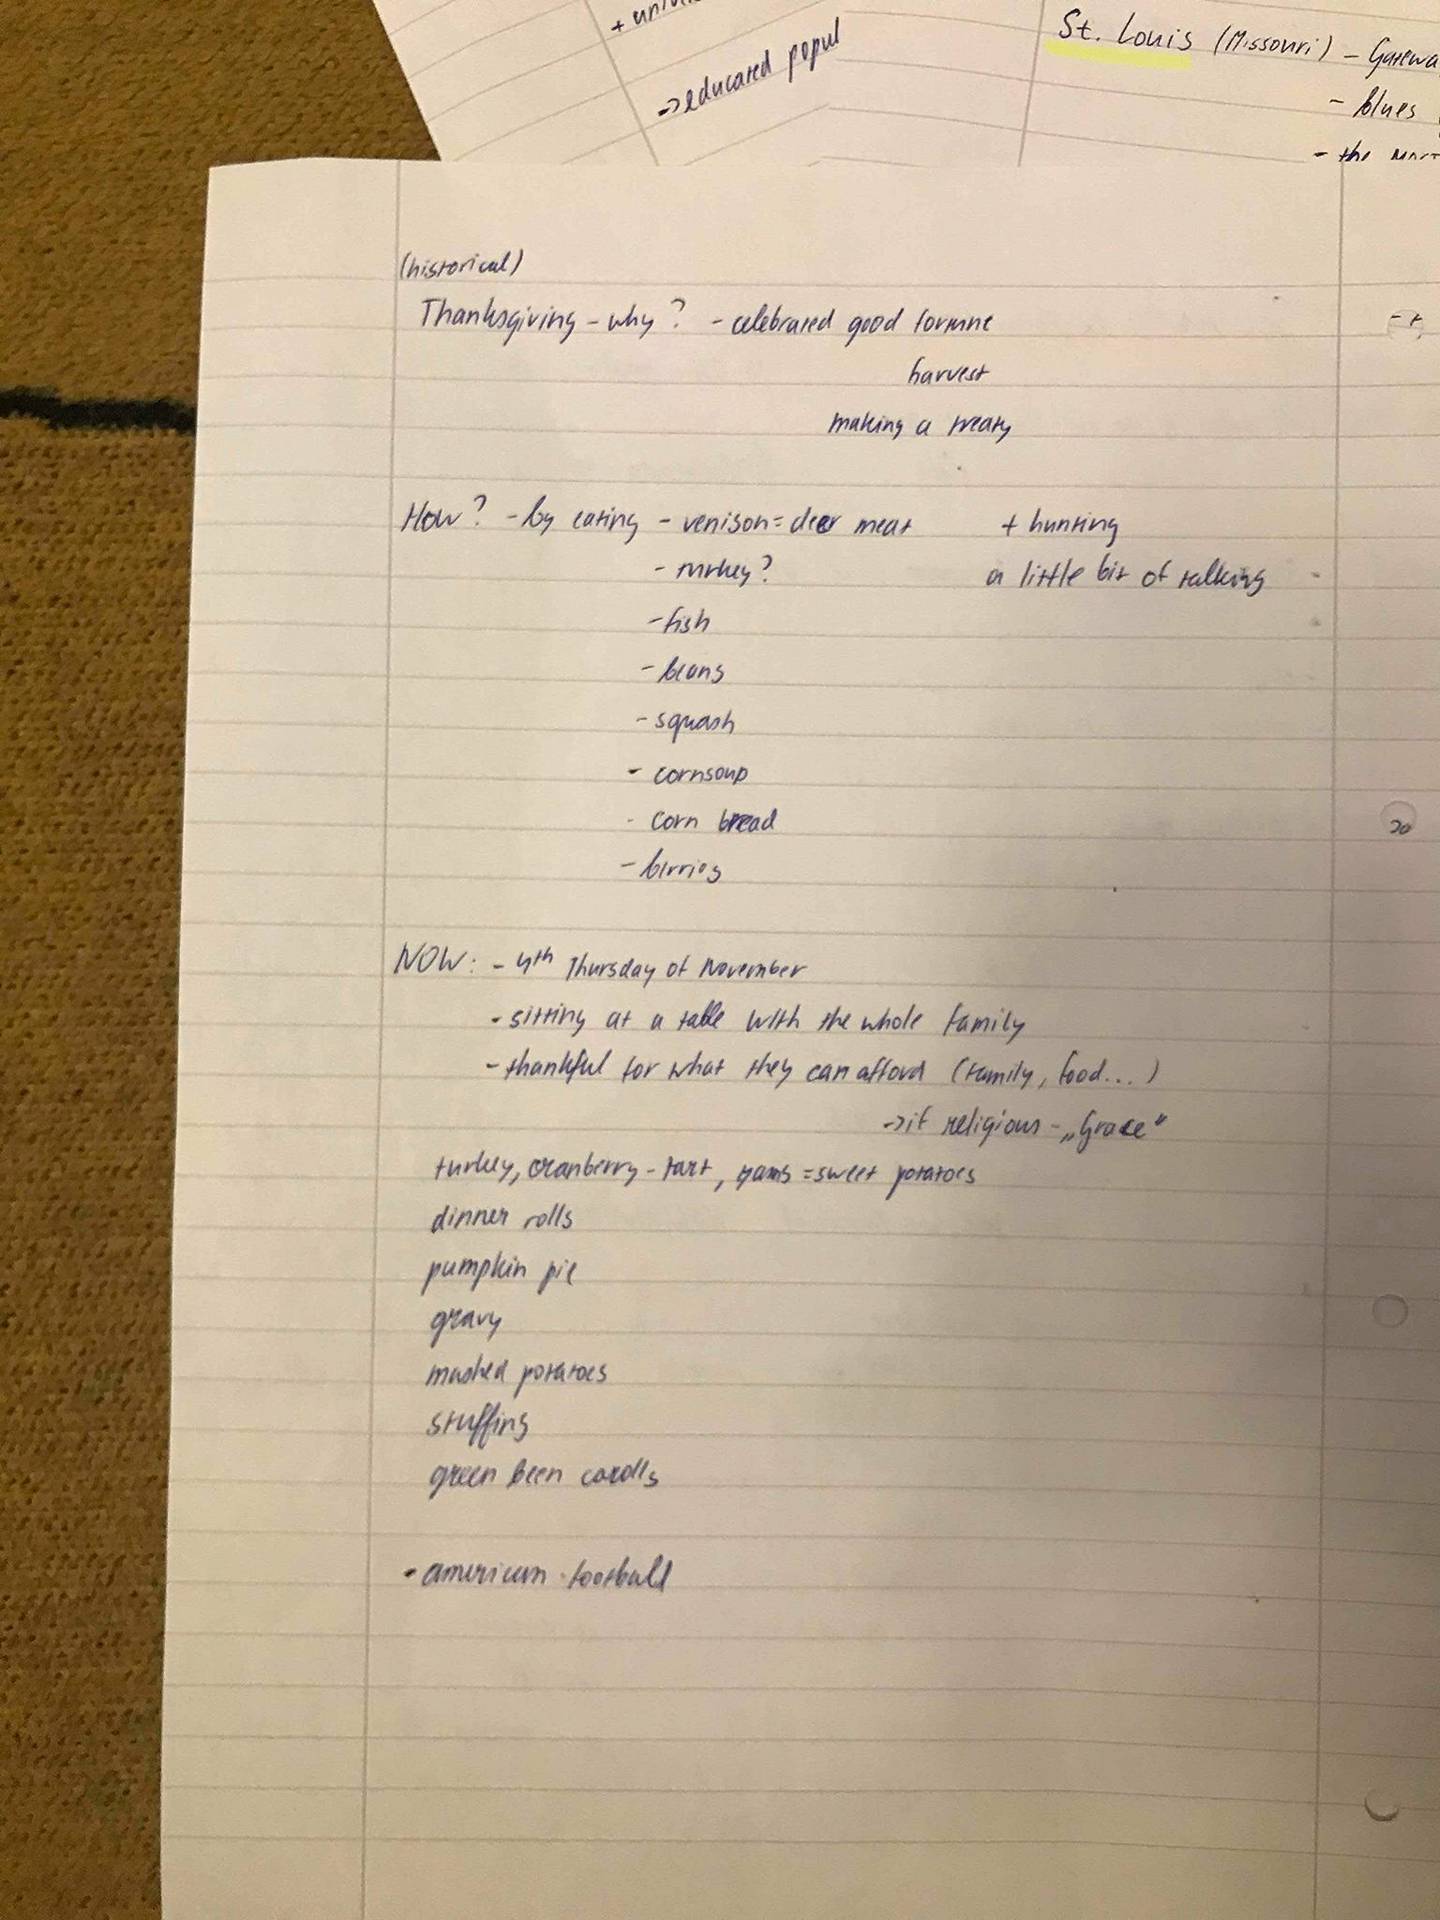 → educated popul
St. Louis (Missouri) -
- blues
- the
(historical)
Thanksgiving - why? - celebrated good fortune
harvest
making a treaty
How? - by eating - venison = deer meat + hunting
- turkey? a little bit of talking
- fish
- beans
- squash
- cornsoup
- corn bread
- berries
NOW: - 4th Thursday of November
- sitting at a table with the whole family
- thankful for what they can afford (family, food...)
→ if religious - „Grace“
turkey, cranberry - tart, yams = sweet potatoes
dinner rolls
pumpkin pie
gravy
mashed potatoes
stuffing
green been
- american football